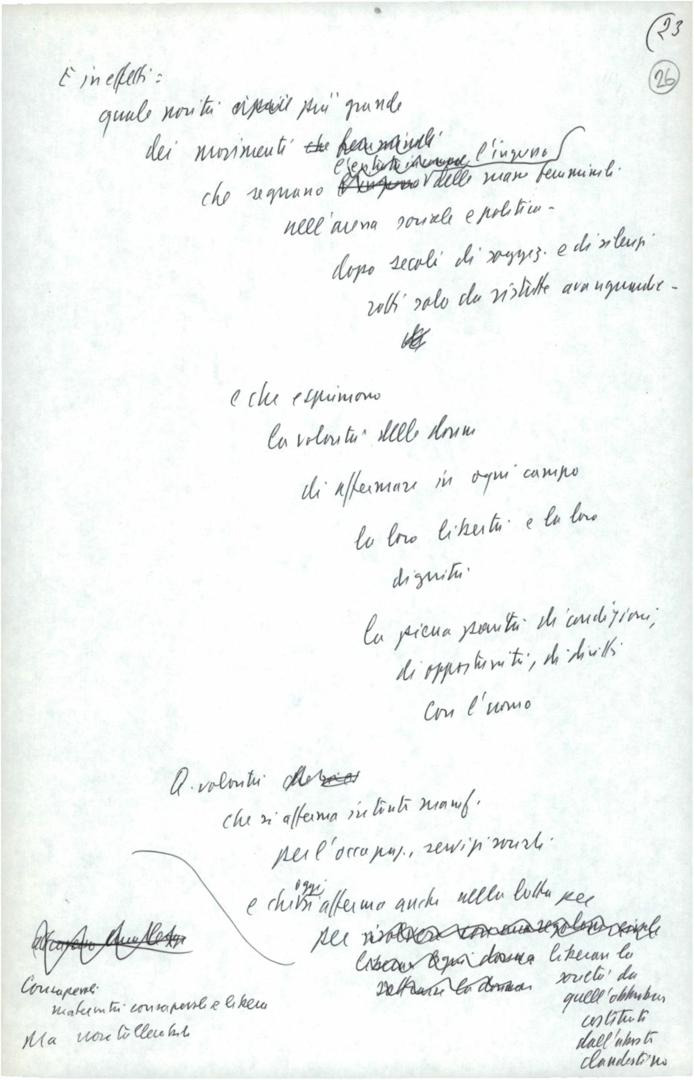 (23
26
E in effetti:
quale novità più grande
dei movimenti che femminili
l'ingresso
che segnano l'ingresso delle masse femminili
nell'arena sociale e politica -
dopo secoli di soggez. e di silenzi
rotti solo da ristrette avanguardie -
e che esprimono
la volontà delle donne
di affermare in ogni campo
la loro libertà e la loro
dignità
la piena parità di condizioni,
di opportunità, di diritti
con l'uomo
volontà
che si afferma in tante manif.
per l'occupaz., servizi sociali
oggi
e che si afferma anche nella lotta per
per
liberare ogni donna liberare la
società da
quell'obbrobrio
costituito
dall'aborto
clandestino
Consapevoli
maternità consapevole e libera
Ma